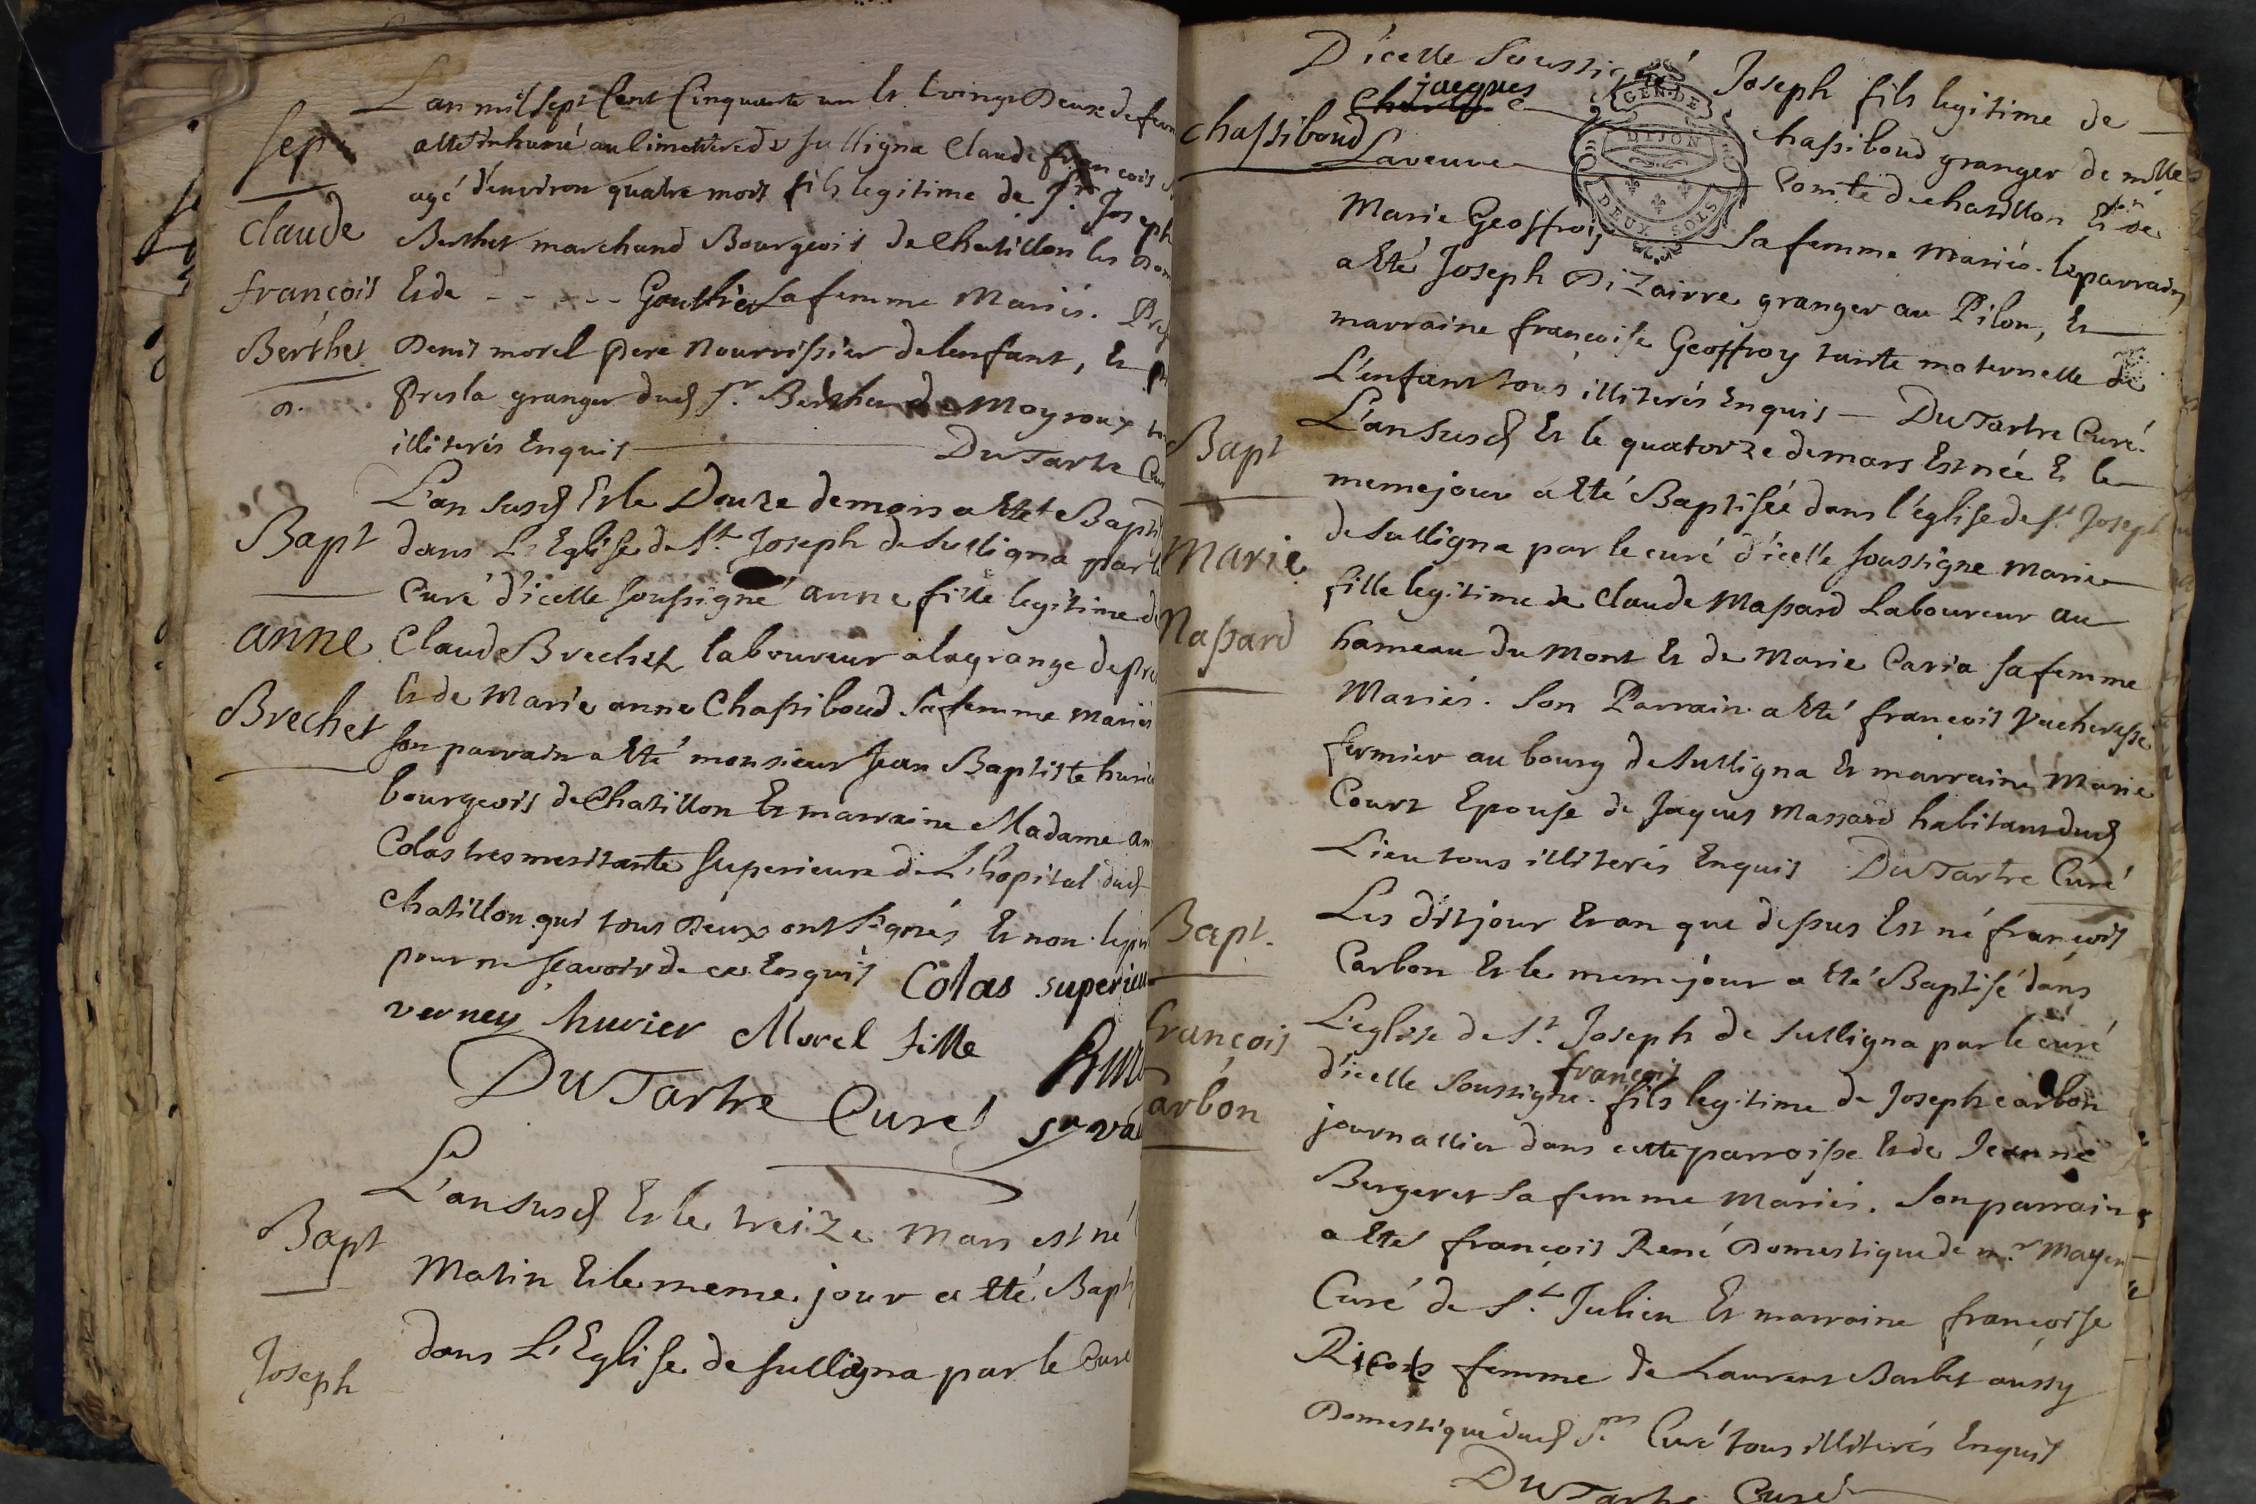 Sep
claude
françois
Berthet
L'an mil sept Cent Cinquante un Et vingt Deux de
a été Inhumé au Cimettiere de Sulligna Claude françois
agé d'environ quatre mois fils legitime de Sr. Joseph
Berthet marchand Bourgeois de Chatillon les
Et de - - - - Gouthier Sa femme Mariés.
Denis morel pere Nourrissier de lenfant, Et
granger dud Sr. Berthet de Moyroux
illiterés Enquis DuTartre
Bapt
anne
Brechet
L'an Susd Et le Douze de mars a été
dans L'Eglise de St. Joseph de Sulligna par le
Curé d'icelle soussigné anne fille legitime
Claude Brechet laboureur a la grange
Et de Marie anne Chassiboud Sa femme mariés
Son parrain a Eté monsieur Jean Baptiste
bourgeois de Chatillon Et marraine Madame
Colas tres meritante Superieure de L'hopital dud
Chatillon qui tous Deux ont Signés Et non
pour ne sçavoir de ce Enquis Colas
verney hurier Morel fille
DuTartre Curé
Bapt
Joseph
L'an Susd Et le treize Mars est né
Matin Et le meme jour a été
dans L'Eglise de Sulligna par le Curé
chassiboud
D'icelle Joseph fils legitime de
jacques chassiboud granger de
Laveuve Comte de chatillon Et de
Marie Geoffroy Sa femme Mariés. le parrain
a Eté Joseph Dizairre granger au Pilon, Et
marraine françoise Geoffroy tante maternelle de
L'enfant tous illiterés Enquis — DuTartre Curé
Bapt
Marie
Massard
L'an susd Et le quatorze de mars Est née Et le
meme jour a Eté Baptisée dans l'église de St. Joseph
de Sulligna par le curé d'icelle soussigne Marie
fille legitime de Claude Massard Laboureur au
hameau du Mont Et de Marie Caria sa femme
Mariés. Son Parrain a Eté françois Vacheresse
fermier au bourg de Sulligna Et marraine Marie
Court Epouse de Jaques Massard habitant dud
Lieu tous illiterés Enquis DuTartre Curé
Bapt.
françois
Carbon
Les dit jour Et an que dessus Est né françois
Carbon Et le meme jour a Eté Baptisé dans
L'eglise de St. Joseph de Sulligna par le curé
d'icelle Soussigne. françois fils legitime de Joseph carbon
journallier dans cette parroisse Et de Jeanne
Bergeret Sa femme Mariés. Son parrain
a Eté françois René Domestique de mr. Mayen
Curé de St. Julien Et marraine françoise
femme de Laurent Barbet aussy
Domestique dud Sr. Curé tous illiterés Enquis
DuTartre Curé
GEN. DE
DIJON
DEUX SOLS